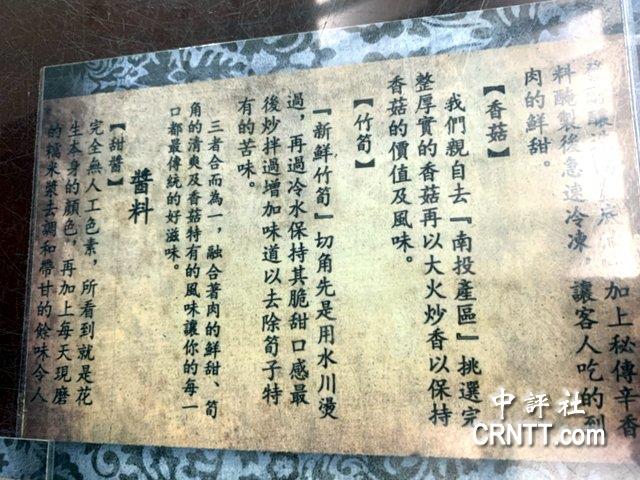 加上秘傳辛香
料醃製後急速冷凍，讓客人吃的到
肉的鮮甜。
【香菇】
我們親自去『南投產區』挑選完
整厚實的香菇再以大火炒香以保持
香菇的價值及風味。
【竹筍】
『新鮮竹筍』切角先是用水川燙
過，再過冷水保持其脆甜口感最
後炒拌過增加味道以去除筍子特
有的苦味。
三者合而為一，融合著肉的鮮甜、筍
角的清爽及香菇特有的風味讓你的每一
口都最傳統的好滋味。
醬料
【甜醬】
完全無人工色素，所看到就是花
生本身的顏色，再加上每天現磨
的糯米漿去調和帶甘的餘味令人
中評社
CRNTT.com